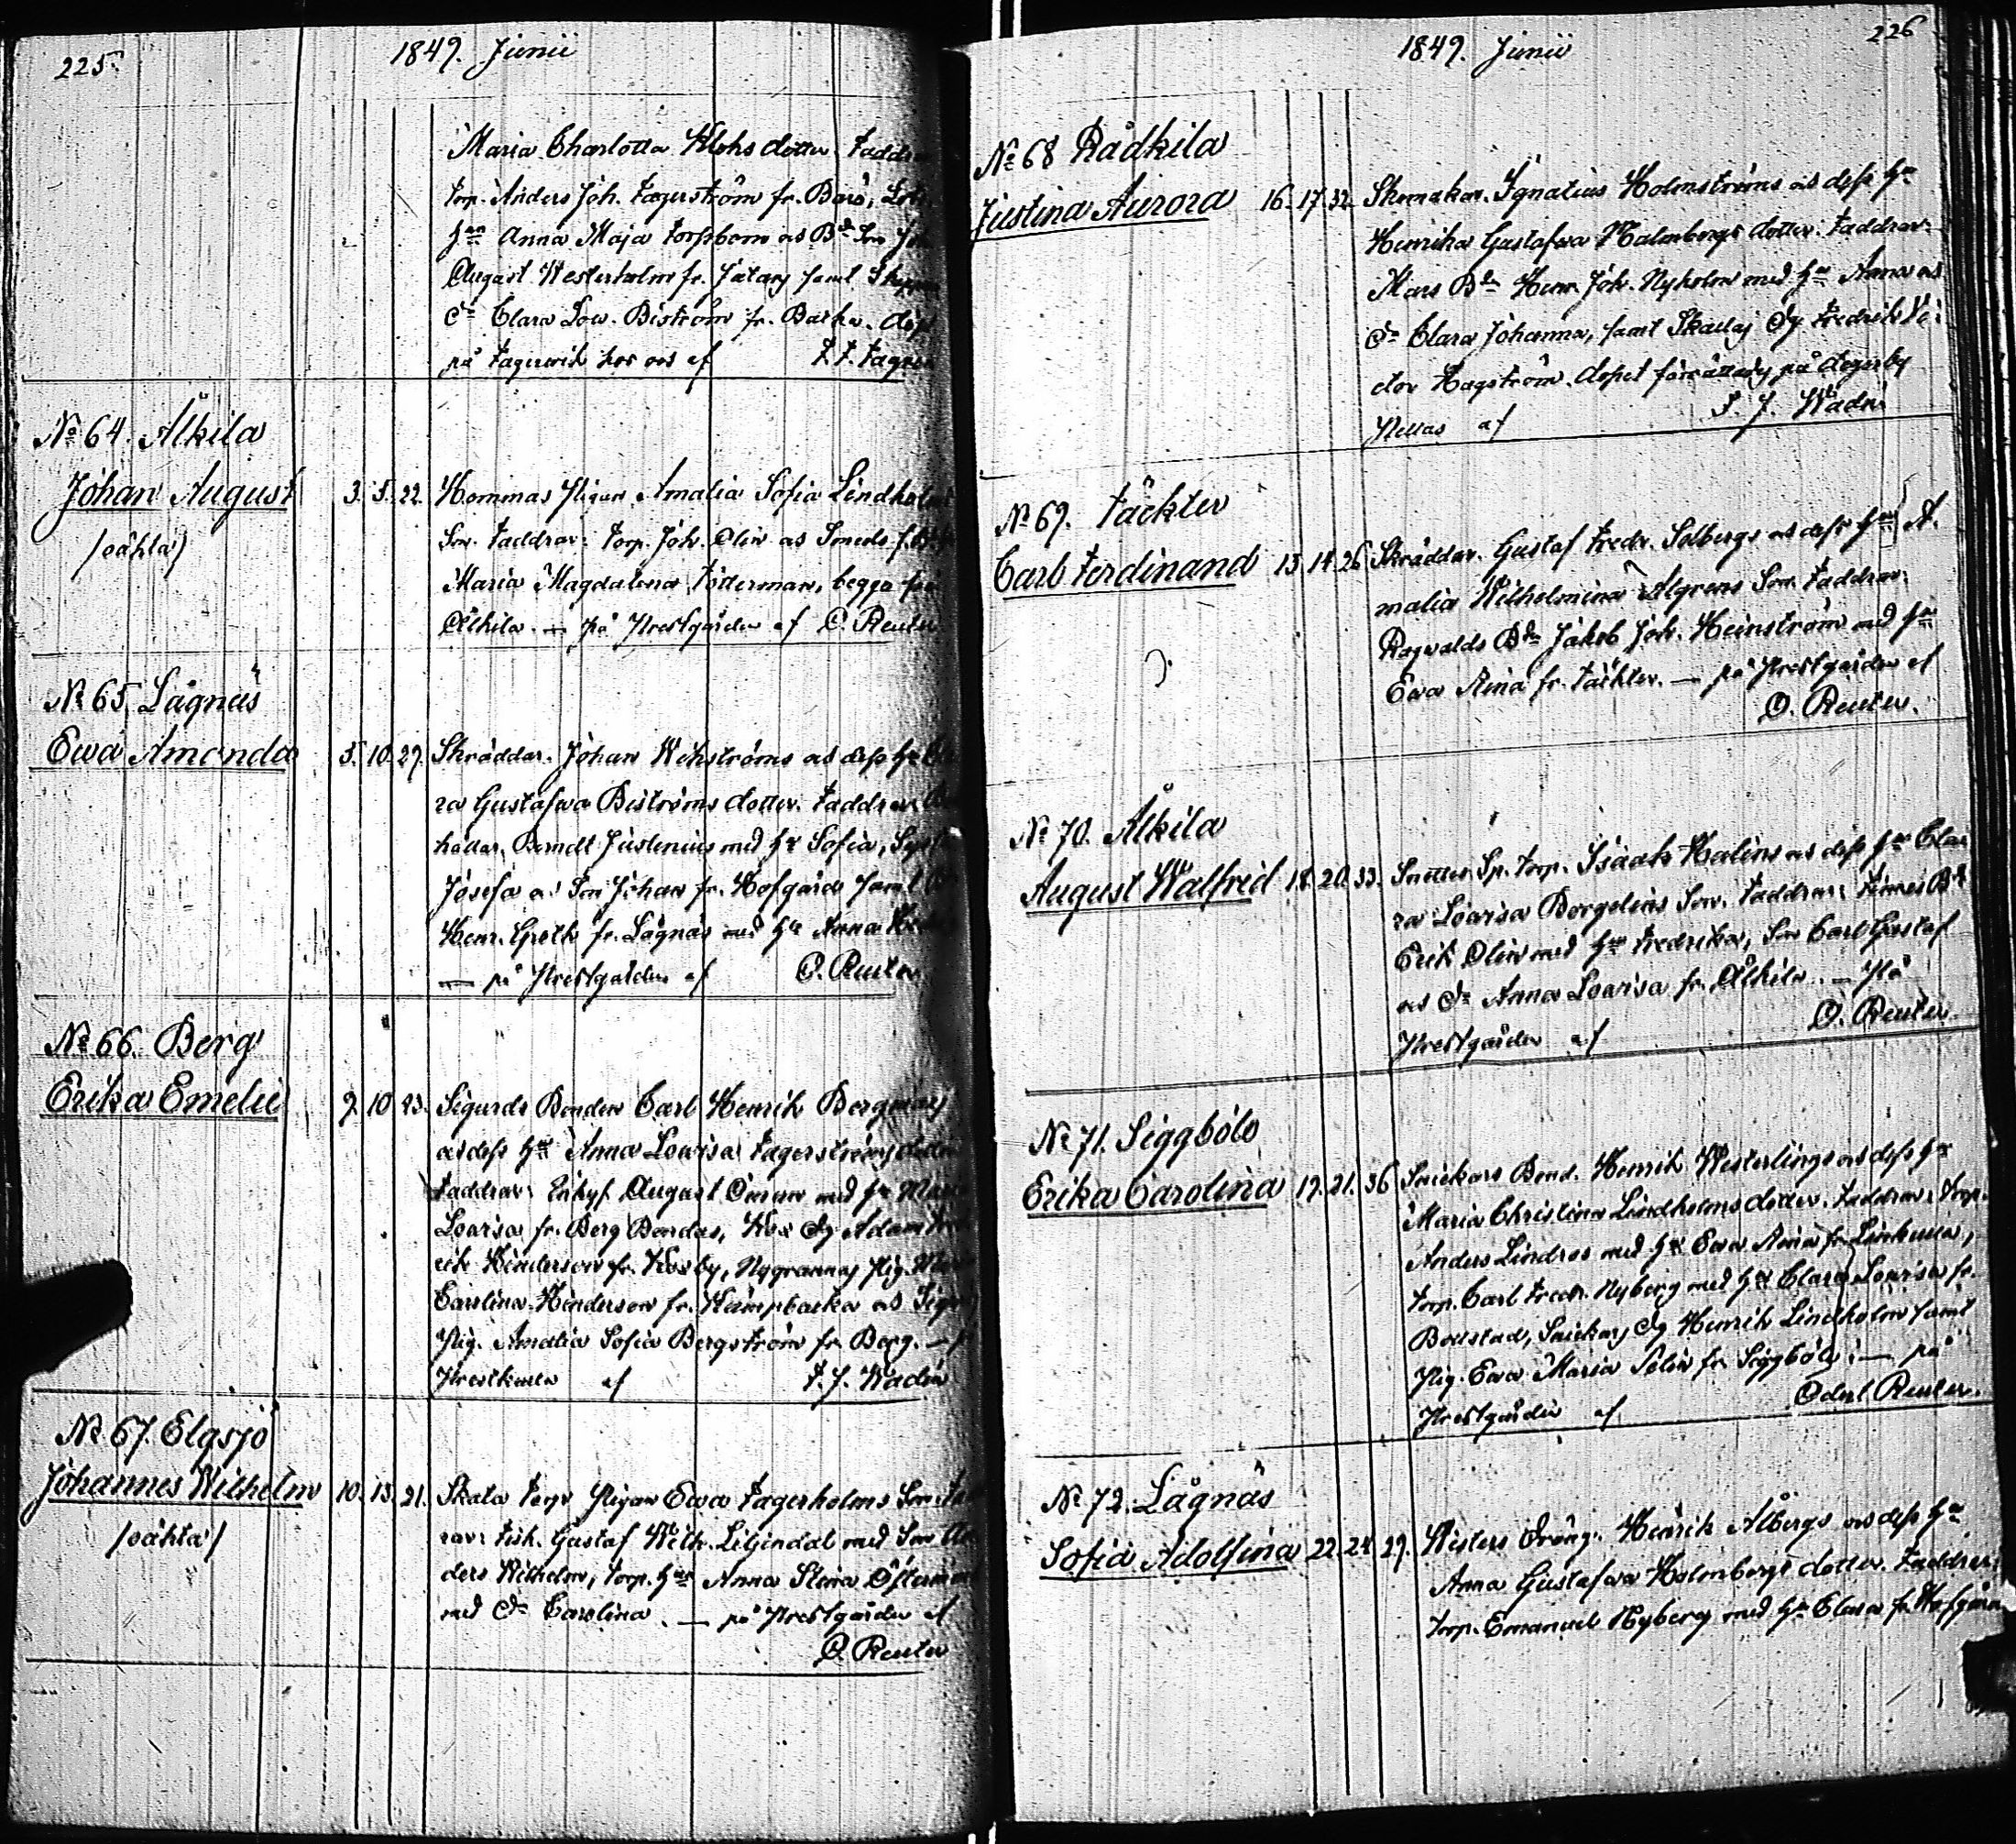 225.
1849. Junii
Maria Charlotta Klohs dotter. Faddra
torp. Anders Joh. Fagerström fr. Barö,
hn Anna Maja Torpbom as Bd Son
August Westerholm fr. samt
do Clara Lov. Biström fr. Backa. dop
på Fagervik hos oss af
No 64. Ålkila
Johan August 3. 5. 22. Hommas Pigan Amalia Sofia Lindholm
/oäkta/ Son. Faddrar: Torp. Joh. Olin as Smeds
Maria Magdalena Töterman, begge
Ålkila. — på Prestgården af O. Reuter
No 65. Lågnäs
Ewa Amanda 5. 10. 29. Skräddar. Johan Wikströms as dess hu
ra Gustafwa Biströms dotter. Faddrar
hållar. Berndt Justenius med hu Sofia,
Josefa as Son Johan fr. Hofgård samt
Henr. Groth fr. Lågnäs med hu Anna
— på Prestgården af O. Reuter
No 66. Berg
Erika Emelie 9. 10. 23. Sigurds Bonden Carl Henrik Bergmans
as dess hu Anna Lovisa Fagerströms dotter
Faddrar: August Öman med hu
Lovisa fr. Berg Bondas, Kox Dg Adam
rik Hinderson fr. Koxby, Nygrannas Pig.
Carolina Hinderson fr. Kämpbacka as
Pig. Amalia Sofia Bergström fr. Berg. —
Prestkulla af F. J. Wadén
No 67. Elgsjö
Johannes Wilhelm 10. 13. 21. Skata Torps Pigan Ewa Fagerholms Son.
/oäkta/ rar: Fisk. Gustaf Wilh. Liljendal med Son
ders Wilhelm, Torp. hu Anna Stina Österman
med do Carolina. — på Prestgården af
O. Reuter
226
1849. Junii
No 68 Rådkila
Justina Aurora 16. 17. 32. Skomakar. Ignatius Holmströms as dess hu
Henrika Gustafwa Malmbergs dotter. Faddrar:
Mars Bdn Henr. Joh. Nyholm med hu Anna as
do Clara Johanna, samt Skallas Dg Fredrik Vi:
ctor Hagström. dopet förrättadt på Degerby
af F. J. Wadén
No 69. Täckter
Carl Ferdinand 13. 14. 26 Skräddar. Gustaf Fredr. Solbergs as dess hu A.
malia Wilhelmina Algrens Son. Faddrar:
Ragvalds Bdn Jakob Joh. Heinström med hu
Ewa Stina fr. Täckter. — på Prestgården af
O. Reuter.
No 70. Ålkila
August Walfrid 18. 20. 33. Smeltes Sp. torp. Isaak Malins as dess hu Cla:
ra Lovisa Borgelins Son. Faddrar: Bd
Erik Olin med hu Fredrika, Son Carl Gustaf
as do Anna Lovisa fr. Ålkila. — På
Prestgården af O. Reuter
No 71. Siggböle
Erika Carolina 19. 21. 36 Snickars Bond. Henrik Westerlings as dess hu
Maria Christina Lindholms dotter. Faddrar: Torp.
Anders Lindros med hu Ewa Stina fr. Linkulla,
torp. Carl Fredr. Nyberg med hu Clara Lovisa fr.
Bollstad, Snickars Dg Henrik Lindholm samt
Pig. Ewa Maria Selin fr. Siggböle: — på
Prestgården af Oderl. Reuter.
No 72. Lågnäs
Sofia Adolfina 22. 24. 29. Wisters Dräng. Henrik Ålbergs as dess hu
Anna Gustafwa Holmbergs dotter. Faddrar:
torp. Emanuel Nyberg med hu Clara fr. Hofgård